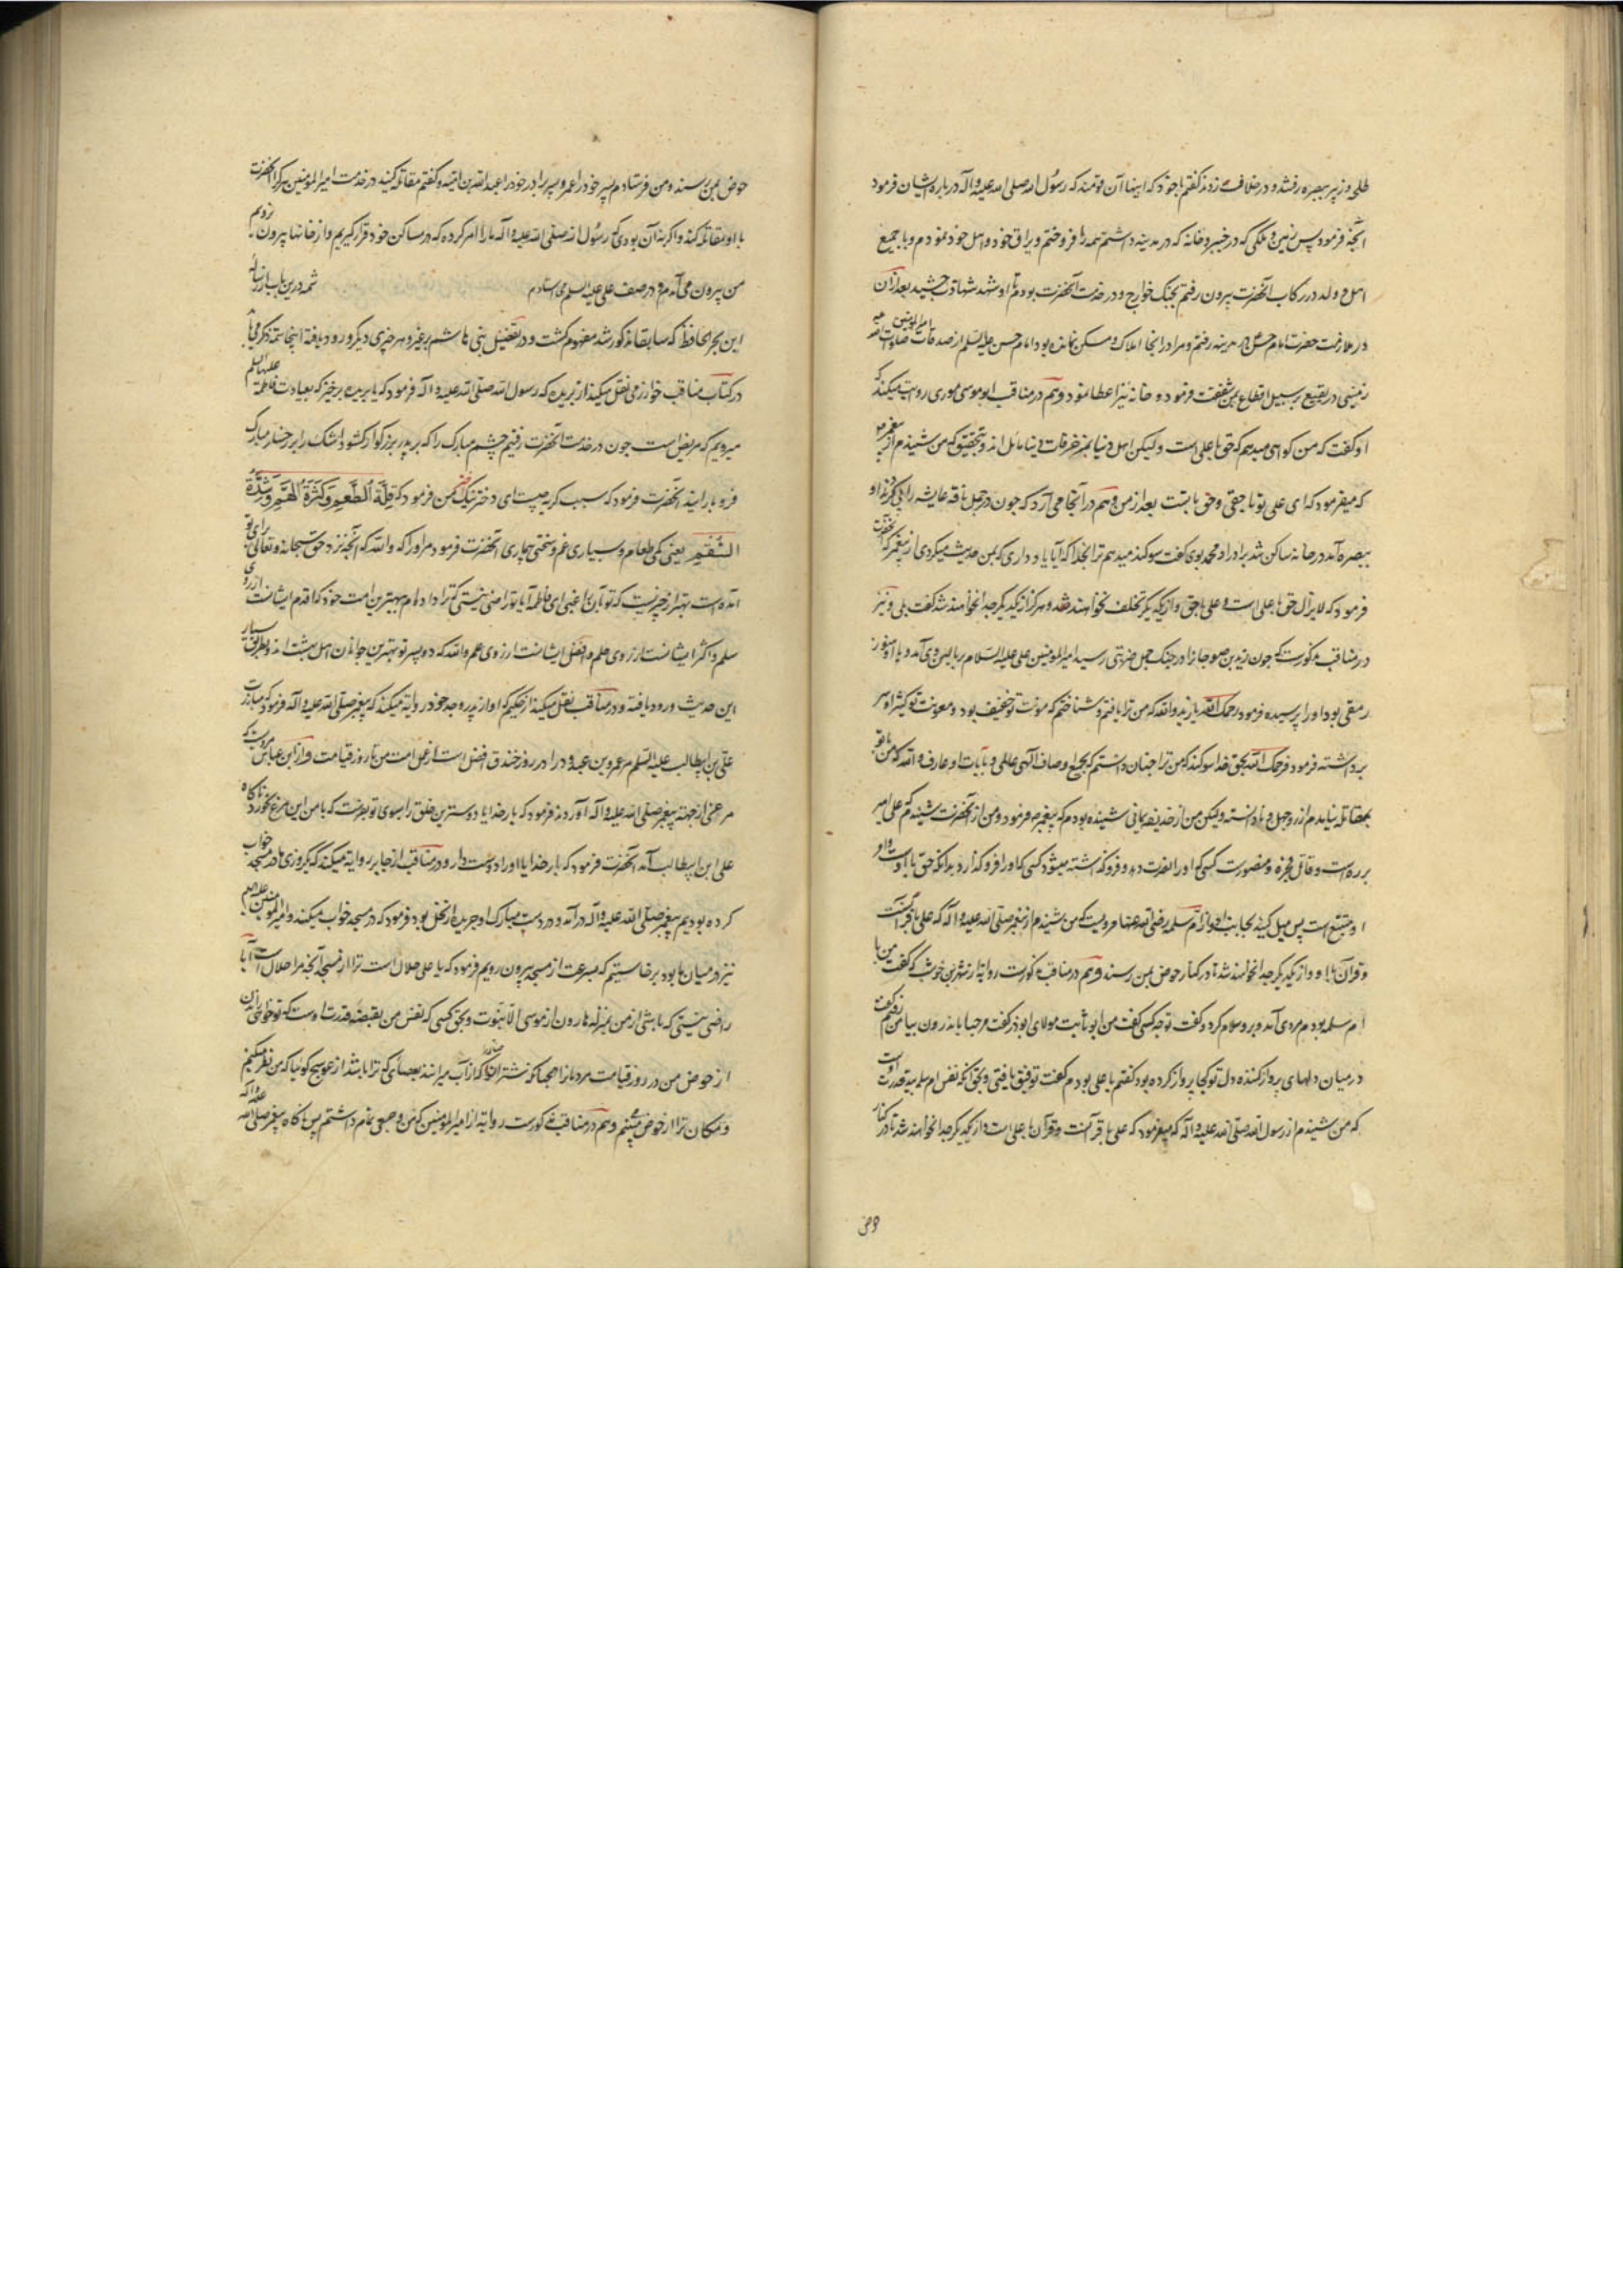 طلحه و زبیر ببصره رفتند و در خلاف زدند گفتم با خود که اینها آن قومند که رسول الله صلی الله علیه و آله در باره ایشان فرمود
آنچه فرمود پس زمین و ملکی که در خیبر و خانه که در مدینه داشتم همه را فروختم و یراق خود و اهل خود نمودم و با جمیع
اهل و ولد در رکاب آنحضرت بیرون رفتم بجنک خوارج و در خدمت آنحضرت بودم تا او شهد شهادت چشید بعد از آن
در ملازمت حضرت امام حسن بمدینه رفتم و مرا در انجا املاک و مسکن نمانده بود امام حسن علیه السلم از صدقات امیر المومنین صلوات الله علیه
زمینی در بقیع بر سبیل اقطاع بمن شفقت فرمود و خانه نیز اعطا نمود و هم در مناقب ابو موسی روایت میکند که
او گفت که من کواهی میدهم که حق با علی است و لیکن اهل دنیا بمزخرفات دنیا مائل اند و بتحقیق که من شنیدم از پیغمبر
که میفرمود که ای علی تو با حقی و حق با تست بعد از من و هم در آنجا می آرد که چون در جمل ناقه عایشه را پی کردند او
ببصره آمد در خانه ساکن شد برادر او محمد بوی گفت سوکند میدهم ترا بخدا که آیا یاد داری که بمن حدیث میکردی از پیغمبر که آنحضرت
فرمود که لا یزال حق با علی است و علی با حق و از یکدیگر تخلف نخواهند شد و هرکز از یکدیگر جدا نخواهند شد گفت بلی و نیز
در مناقب مذکورست که چون زید بن صوحانرا در جنک جمل ضربتی رسید امیر المومنین علی علیه السلام ببالین وی آمد و با او هنوز
رمقی بود او را پرسیده فرمود رحمک الله یا زید والله که من ترا یافتم و شناختم که مونت تو خفیف بود و معونت تو کثیر او سر
برداشته فرمود فرحمک الله بحق خدا سوکند که من ترا چنان دانستم که بجمیع اوصاف الهی عالمی و بآیات او عارف والله که من با تو
بمقاتله نیامدم از روی جهل و نادانسته و لیکن من از حذیفه یمانی شنیده بودم که پیغمبر فرمود و من از آنحضرت شنیدم که علی امیر
برره است و قاتل فجره و منصورست کسی که او را نصرت دهد و فرو گذاشته میشود کسی که او را فرو گذارد بدانکه حق با اوست و او
متبع است پس میل کنید بجانب او و از ام سلمه رضی الله عنها مرویست که من شنیدم از پیغمبر صلی الله علیه و آله که علی با قرآنست
و قرآن با او و از یکدیگر جدا نخواهند شد تا در کنار حوض بمن رسند و هم در مناقب مذکورست روایة از شهر بن خوشب که گفت من با
ام سلمه بودم مردی آمد و بر وی سلام کرد و گفت تو چه کسی گفت من ابو ثابت مولای ابوذر گفت مرحبا یا بذرون بیا من رفتم گفت
در میان دلهای پرواز کننده دل تو کجا پرواز کرده بود گفتم با علی بودم گفت توفیق یافتی و بحق آنکه نفس ام سلمه بید قدرت اوست
که من شنیدم از رسول الله صلی الله علیه و آله که میفرمود که علی با قرآنست و قرآن با علی است و از یکدیگر جدا نخواهند شد تا در کنار
حوض
حوض بمن رسند و من فرستادم پسر خود را عمر و پسر برادر خود را عبد الله بن امیه و گفتم مقاتله کنید در خدمت امیر المومنین هرکرا آنحضرت
با او مقاتله کند و اکر نه آن بودی که رسول الله صلی الله علیه و آله ما را امر کرده که در مساکن خود قرار گیریم و از خانها بیرون نرویم
من بیرون می آمدم و در صف علی علیه السلم می استادم
این بحر الحافظ که سابقا مذکور شد مفهوم کشت و در تفضیل بنی هاشم بر غیر هر خبری دیگر ورود یافته اینجا تتمه ذکر
در کتاب مناقب خوارزمی نقل میکند از بریده که رسول الله صلی الله علیه و آله فرمود که یا بریده برخیز که بعیادت فاطمه علیها السلم
میرویم که مریض است چون در خدمت آنحضرت رفتیم چشم مبارک را که بر پدر بزرکوار کشود اشک را بر رخسار مبارک
فرو بارانید آنحضرت فرمود که سبب کریه چیست ای دخترنیک من فرمود که قِلَّةُ الطَّعمِ وَکَثرَةُ الهَمِّ وَشِدَّةُ
السُّقمِ یعنی کمی طعام و بسیاری غم و سختی بیماری آنحضرت فرمود مر او را که والله که آنچه نزد حق سبحانه و تعالی برای تو
آمده است بهتر از چیزیست که تو بآن راغبی ای فاطمه آیا تو راضی نیستی که ترا داده ام ببهترین امت خود که اقدم ایشانست از روی
سلم و اکثر ایشانست از روی علم و افضل ایشانست از روی حلم والله که دو پسر تو بهترین جوانان اهل بهشت اند و بطریق بسیار
این حدیث ورود یافته و در مناقب نقل میکند از حکیم که او از پدر و جد خود روایة میکند که پیغمبر صلی الله علیه و آله فرمود که مبارزت
علی بن ابیطالب علیه السلم مر عمرو بن عبدود را در روز خندق افضل است از عمل امت من تا روز قیامت و از ابن عباس مرویست که
مرغی از جهته پیغمبر صلی الله علیه و آله آوردند فرمود که بار خدایا دوسترین خلق را بسوی تو بفرست که با من این مرغ بخورد ناکاه
علی ابن ابیطالب آمد آنحضرت فرمود که بار خدایا او را دوست دار و در مناقب از جابر روایة میکند که یکروزی ما در مسجد خواب
کرده بودیم پیغمبر صلی الله علیه و آله درآمد و در دست مبارک او جریده از نخل بود فرمود که در مسجد خواب میکنند و امیر المومنین
نیز در میان ما بود برخاستیم که بسرعت از مسجد بیرون رویم فرمود که یا علی حلال است ترا از مسجد آنچه مرا حلال است آیا
راضی نیستی که باشی از من بمنزله هارون از موسی الا نبوت و بحق کسی که نفس من بقبضه قدرت اوست که تو خواهی راندن
از حوض من در روز قیامت مردمانرا همچنانکه شتر را از آب میرانند بعصائی که ترا باشد از عوسج کوئیا که من نظر میکنم
و مکان ترا از حوض می بینم و هم در مناقب مذکورست روایة از امیر المومنین که من وجعی تمام داشتم پس ناکاه پیغمبر صلی الله علیه و آله